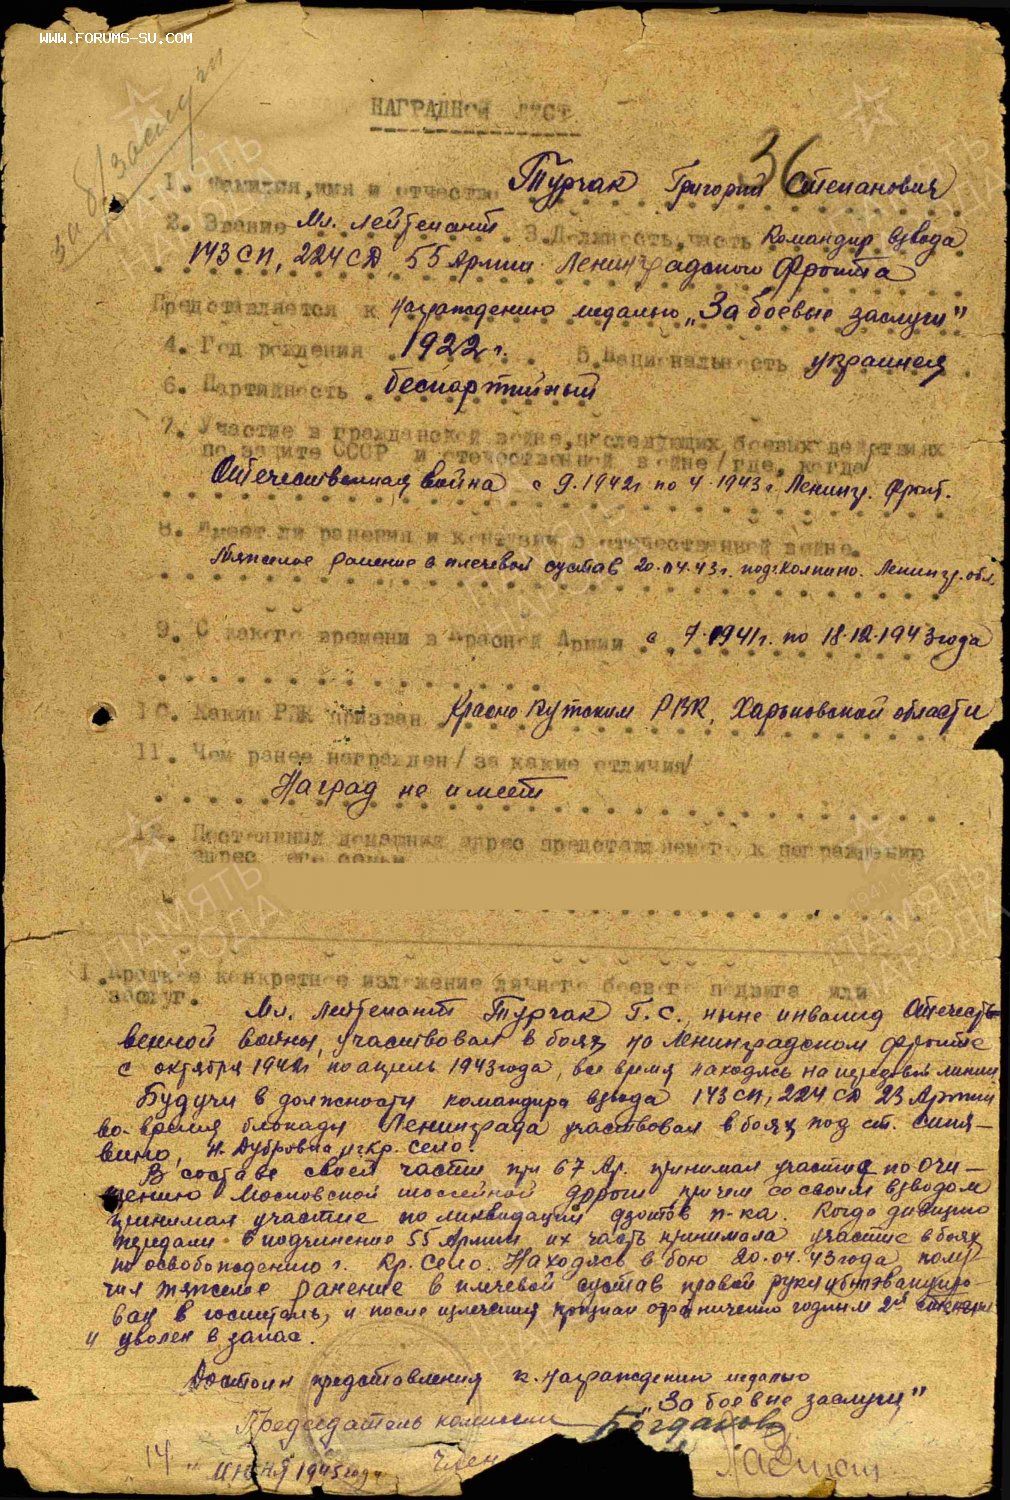 WWW.FORUMS-SU.COM
за б/заслуги
НАГРАДНОЙ ЛИСТ
36
1. Фамилия, имя и отчество Турчак Григорий Степанович
2. Звание Мл. лейтенант 3. Должность, часть Командир взвода
143 СП, 224 СД 55 Армии Ленинградского Фронта
Представляется к награждению медалью „За боевые заслуги"
4. Год рождения 1922 г. 5. Национальность украинец
6. Партийность беспартийный
7. Участие в гражданской войне, последующих боевых действиях
по защите СССР и отечественной войне /где, когда/
Отечественная война с 9.1942г по 4.1943г Ленингр. фронт.
8. Имеет ли ранения и контузии в отечественной войне.
Тяжелое ранение в плечевой сустав 20.04.43г. под г. Колпино. Ленингр. обл.
9. С какого времени в Красной Армии с 7.1941г. по 18.12.1943 года
10. Каким РВК призван Красно Кутским РВК, Харьковской области
11. Чем ранее награжден /за какие отличия/
Наград не имеет
12. Постоянный домашний адрес представляемого к награждению
адрес его семьи
I. Краткое конкретное изложение личного боевого подвига или
заслуг.
Мл. лейтенант Турчак Г.С., ныне инвалид Отечест-
венной войны, участвовал в боях на Ленинградском фронте
с октября 1942г по апрель 1943 года, все время находясь на передовой линии
Будучи в должности командира взвода 143 СП, 224 СД 23 Армии
во-время блокады Ленинграда участвовал в боях под ст. Синя-
вино, Н. Дубровка, и Кр. село.
В составе своей части при 67 Ар. принимал участие по очи-
щению Московской шоссейной дороги причем со своим взводом
принимал участие по ликвидации дзотов п-ка. Когда дивизию
передали в подчинение 55 Армии их часть принимала участие в боях
по освобождению г. Кр. Село. Находясь в бою 20.04.43 года полу-
чил тяжелое ранение в плечевой сустав правой руки эвакуиро-
ван в госпиталь, и после излечения признан ограниченно годным 2й степени
и уволен в запас.
Достоин представления к награждению медалью
„За боевые заслуги"
Председатель комиссии Богданов
Член
"14" июня 1945 года